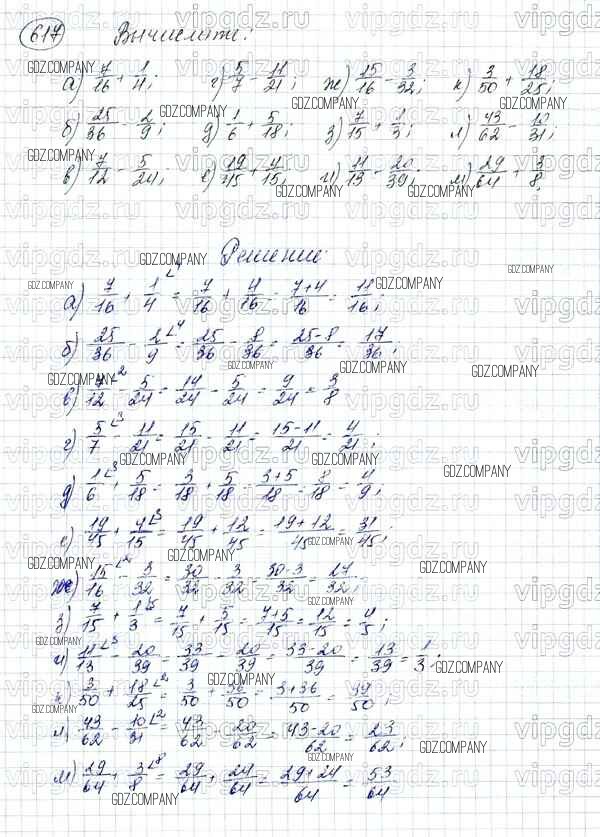 617 Вычислите:
а) 7/16 + 1/4; г) 5/7 - 11/21; ж) 15/16 - 3/32; к) 3/50 + 18/25;
б) 25/36 - 2/9; д) 1/6 + 5/18; з) 7/15 + 1/3; л) 43/62 - 10/31;
в) 7/12 - 5/24; е) 19/45 + 4/15; и) 11/13 - 20/39; м) 29/64 + 3/8.
Решение
а) 7/16 + 1/4 ∠4 = 7/16 + 4/16 = 7+4/16 = 11/16;
б) 25/36 - 2/9 ∠4 = 25/36 - 8/36 = 25-8/36 = 17/36;
в) 7/12 ∠2 - 5/24 = 14/24 - 5/24 = 9/24 = 3/8
г) 5/7 ∠3 - 11/21 = 15/21 - 11/21 = 15-11/21 = 4/21;
д) 1/6 ∠3 + 5/18 = 3/18 + 5/18 = 3+5/18 = 8/18 = 4/9;
е) 19/45 + 4/15 ∠3 = 19/45 + 12/45 = 19+12/45 = 31/45;
ж) 15/16 ∠2 - 3/32 = 30/32 - 3/32 = 30-3/32 = 27/32;
з) 7/15 + 1/3 ∠5 = 7/15 + 5/15 = 7+5/15 = 12/15 = 4/5;
и) 11/13 ∠3 - 20/39 = 33/39 - 20/39 = 33-20/39 = 13/39 = 1/3;
к) 3/50 + 18/25 ∠2 = 3/50 + 36/50 = 3+36/50 = 39/50;
л) 43/62 - 10/31 ∠2 = 43/62 - 20/62 = 43-20/62 = 23/62;
м) 29/64 + 3/8 ∠8 = 29/64 + 24/64 = 29+24/64 = 53/64
vipgdz.ru
GDZ.COMPANY